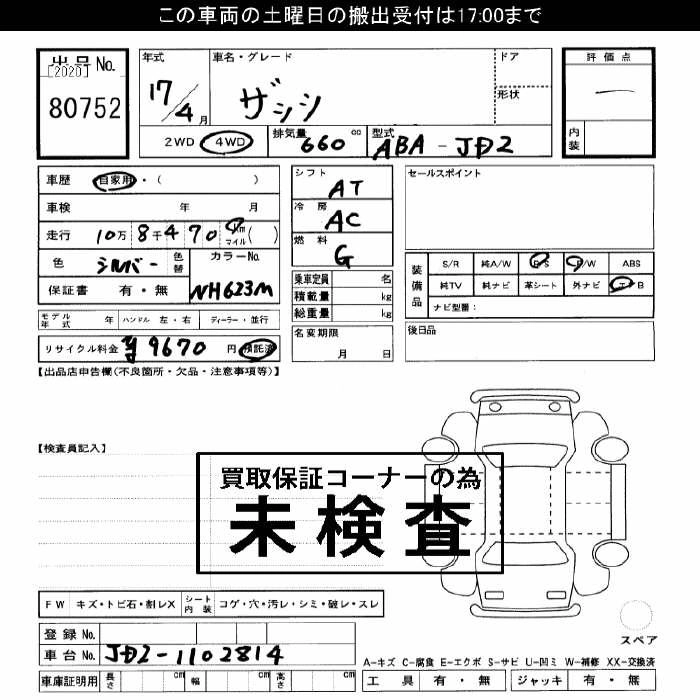 この車両の土曜日の搬出受付は17:00まで
出品No.
[2020]
80752
年式
17/4月
車名・グレード
ザッツ
ドア
形状
2WD 4WD
排気量 660 cc
型式 ABA-JD2
評価点
一
内装
車歴 自家用・( )
車検 年 月
走行 10万 8千 4 70 km マイル ( )
色 シルバー 色替
カラーNo. NH623M
保証書 有・無
シフト AT
冷房 AC
燃料 G
乗車定員 名
積載量 kg
総重量 kg
名変期限 月 日
セールスポイント
装備品
S/R 純A/W P/S P/W ABS
純TV 純ナビ 革シート 外ナビ エアB
ナビ型番:
後日品
モデル年式 年 ハンドル 左・右 ディーラー・並行
リサイクル料金 9670 円 預託済
【出品店申告欄(不良箇所・欠品・注意事項等)】
【検査員記入】
買取保証コーナーの為
未検査
FW キズ・トビ石・割レX シート内装 コゲ・穴・汚レ・シミ・破レ・スレ
登録No.
車台No. JD2-1102814
車庫証明用 長さ cm 幅 cm 高さ cm
スペア
A-キズ C-腐食 E-エクボ S-サビ U-凹ミ W-補修 XX-交換済
工具 有・無 ジャッキ 有・無